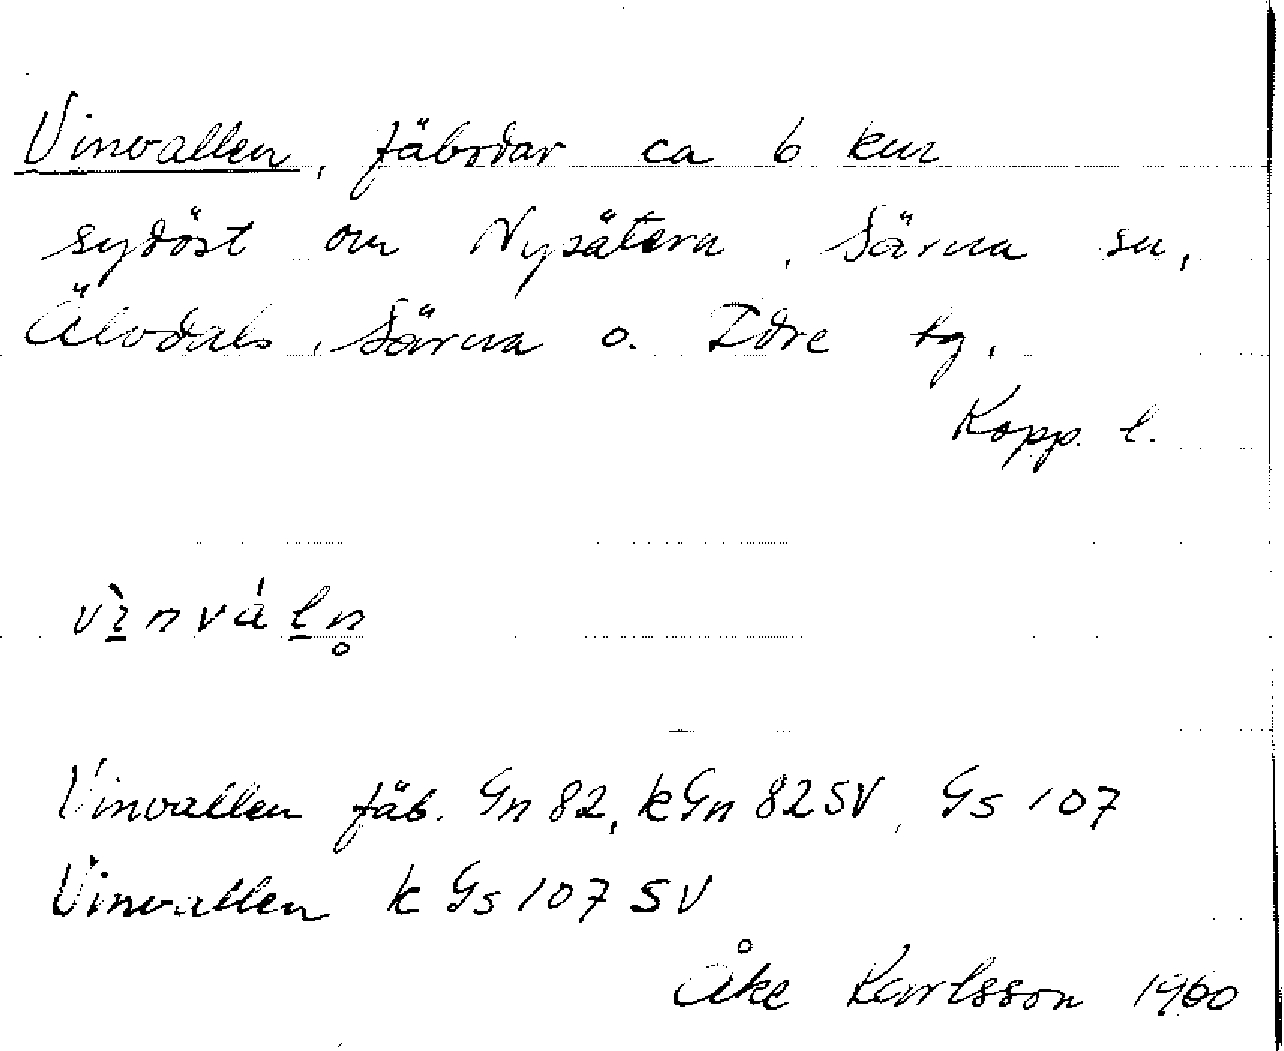 Vinvallen, fäbodar ca 6 km
sydöst om Nysätern, Särna sn,
Älvdals, Särna o. Idre tg.
Kopp. l.
vı̠̀nvál̠n̥
Vinvallen fäb. Gn 82, kGn 82SV, Gs 107
Vinvallen k Gs 107 SV
Åke Karlsson 1960